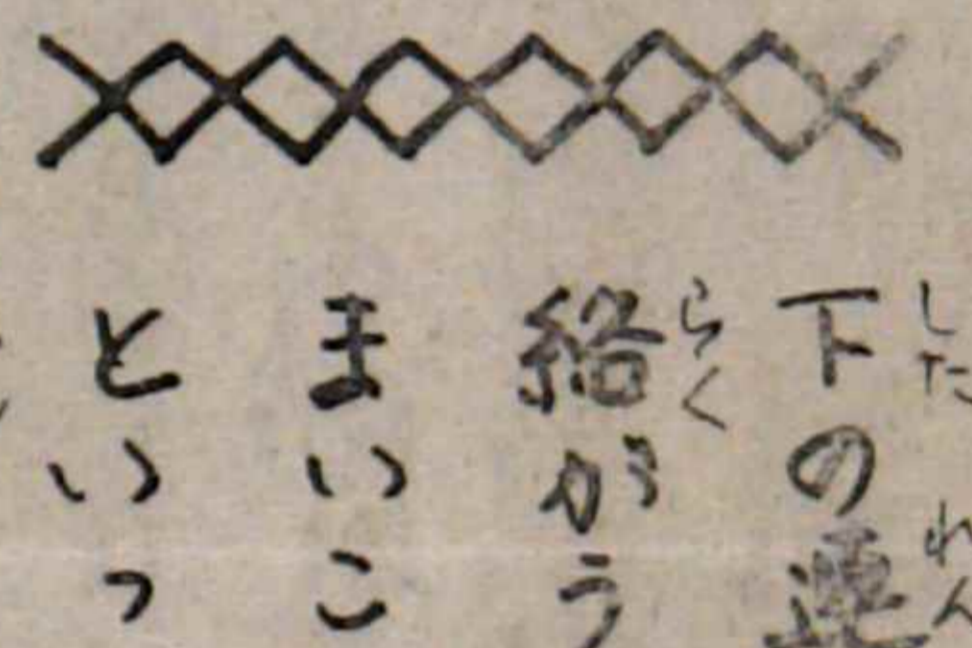 下の連
絡がう
まいこ
といっ